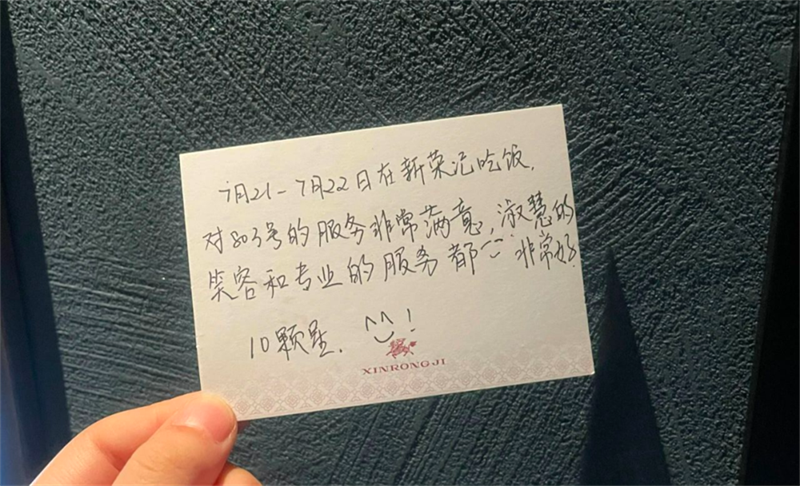 7月21-7月22日在新荣记吃饭.
对803号的服务非常满意,淑慧的
笑容和专业的服务都非常好.
10颗星. ^^!
XINRONGJI